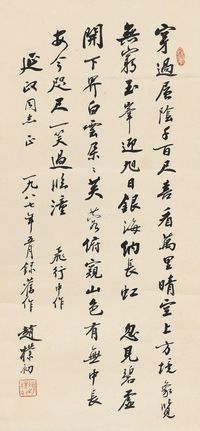 穿過層陰千百尺喜看萬里晴空上方境象覽
無窮玉峯迎旭日銀海納長虹 忽見碧虛
開下界白雲朵〻芙蓉俯窺山色有無中長
安今咫尺一笑過臨潼 飛行中作
延政同志正 一九八七年五月錄舊作 趙樸初